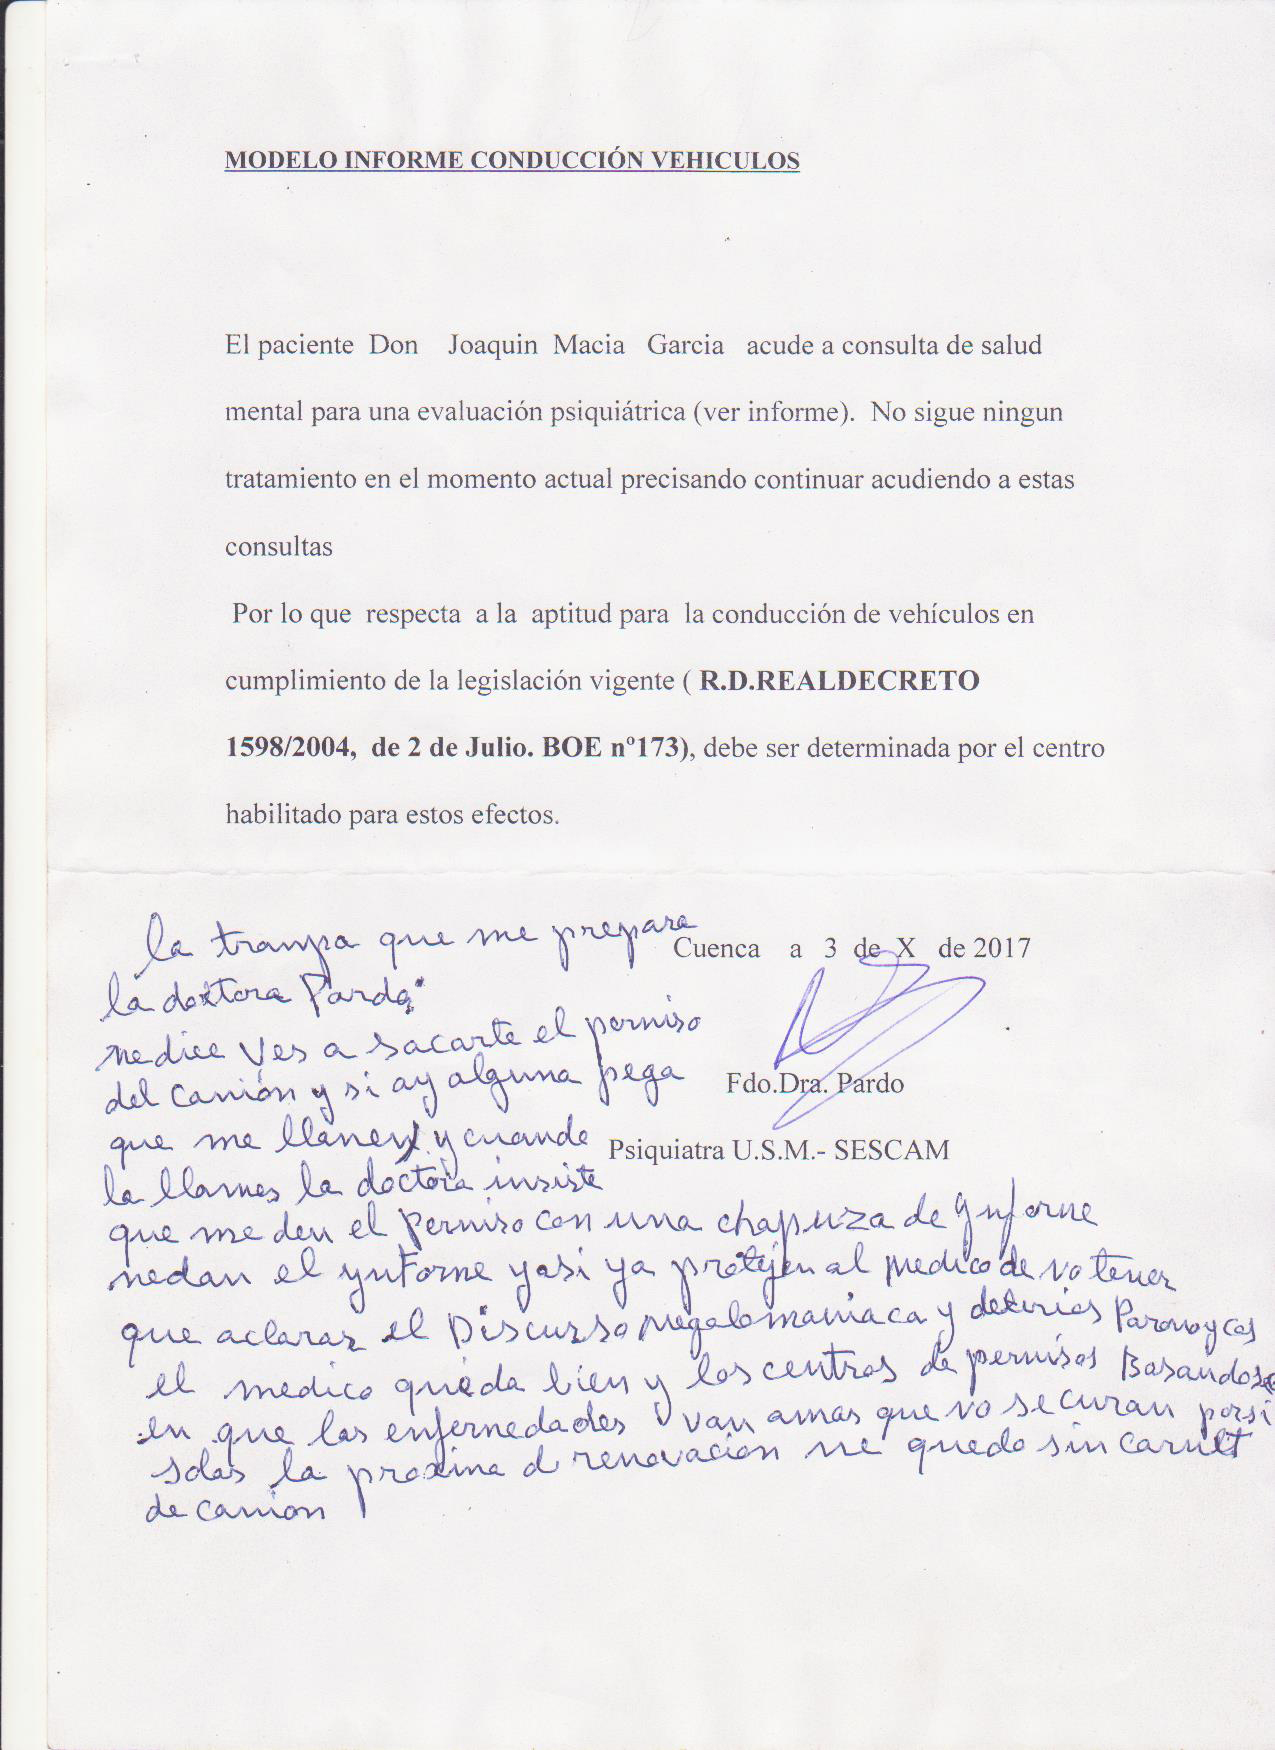 MODELO INFORME CONDUCCIÓN VEHICULOS
El paciente Don Joaquin Macia Garcia acude a consulta de salud
mental para una evaluación psiquiátrica (ver informe). No sigue ningun
tratamiento en el momento actual precisando continuar acudiendo a estas
consultas
Por lo que respecta a la aptitud para la conducción de vehículos en
cumplimiento de la legislación vigente ( R.D.REALDECRETO
1598/2004, de 2 de Julio. BOE nº173), debe ser determinada por el centro
habilitado para estos efectos.
Cuenca a 3 de X de 2017
Fdo.Dra. Pardo
Psiquiatra U.S.M.- SESCAM
la trampa que me prepara
la doctora Pardo
me dice ves a sacarte el permiso
del camión y si ay alguna pega
que me llamen y cuando
la llames la doctora insiste
que me den el permiso con una chapuza de ynforme
medan el ynforme yasi ya protejen al medico de no tener
que aclarar el Discurso megalomaniaca y delirios Paranoycos
el medico queda bien y los centros de permisos Basandose
en que las enfermedades van amas que no se curan porsi
solas la proxima d renovacion me quedo sin carnet
de camion